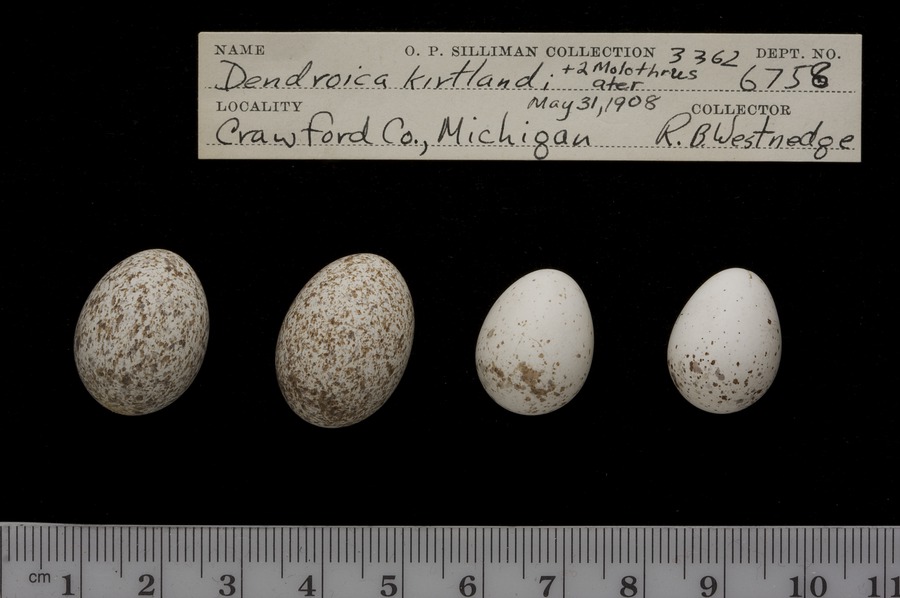 NAME O. P. SILLIMAN COLLECTION 3362 DEPT. NO.
Dendroica kirtlandi +2 Molothrus ater 6758
LOCALITY May 31, 1908 COLLECTOR
Crawford Co., Michigan R. B. Westnedge
cm 1 2 3 4 5 6 7 8 9 10 11